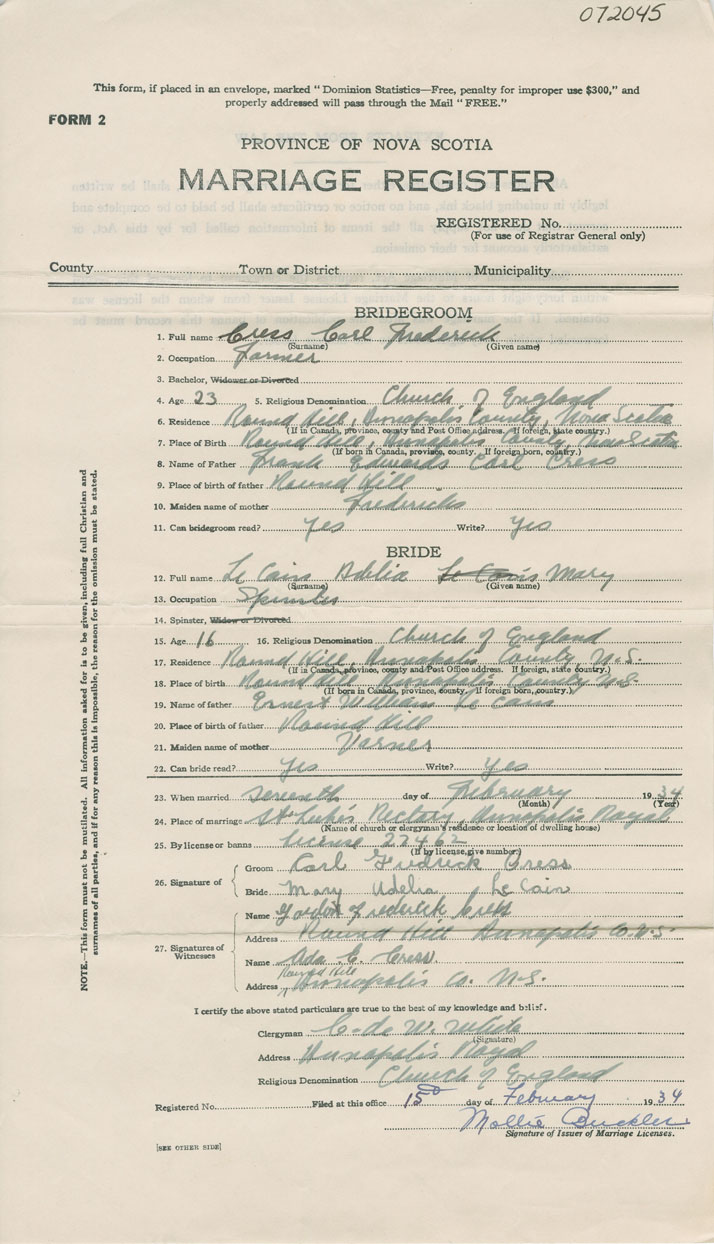 072045
This form, if placed in an envelope, marked "Dominion Statistics—Free, penalty for improper use $300," and
properly addressed will pass through the Mail "FREE."
FORM 2
PROVINCE OF NOVA SCOTIA
MARRIAGE REGISTER
REGISTERED No.
(For use of Registrar General only)
County Town or District Municipality
BRIDEGROOM
1. Full name Cress Carl Frederick
(Surname) (Given name)
2. Occupation Farmer
3. Bachelor, Widower or Divorced
4. Age 23 5. Religious Denomination Church of England
6. Residence Round Hill, Annapolis County, Nova Scotia
(If in Canada, province, county and Post Office address. If foreign, state country.)
7. Place of Birth Round Hill, Annapolis County Nova Scotia
(If born in Canada, province, county. If foreign born, country.)
8. Name of Father Frank Edwards Carl Cress
9. Place of birth of father Round Hill
10. Maiden name of mother Fredericks
11. Can bridegroom read? Yes Write? Yes
BRIDE
12. Full name Le Cain Adelia Le Cain Mary
(Surname) (Given name)
13. Occupation Spinster
14. Spinster, Widow or Divorced.
15. Age 16 16. Religious Denomination Church of England
17. Residence Round Hill, Annapolis County N.S.
(If in Canada, province, county and Post Office address. If foreign, state country.)
18. Place of birth Round Hill Annapolis County N.S.
(If born in Canada, province, county. If foreign born, country.)
19. Name of father Ernest William Le Cain
20. Place of birth of father Round Hill
21. Maiden name of mother Varner
22. Can bride read? Yes Write? Yes
23. When married seventh day of February 1934
(Month) (Year)
24. Place of marriage St Luke's Rectory, Annapolis Royal
(Name of church or clergyman's residence or location of dwelling house)
25. By license or banns License 22462
(If by license, give number)
26. Signature of
Groom Carl Fredrick Cress
Bride Mary Adelia Le Cain
27. Signatures of Witnesses
Name Gordon Frederick Cress
Address Round Hill Annapolis Co. N.S.
Name Ada C. Cress.
Round Hill
Address Annapolis Co. N.S.
I certify the above stated particulars are true to the best of my knowledge and belief.
Clergyman C. de W. White
(Signature)
Address Annapolis Royal
Religious Denomination Church of England
Registered No. Filed at this office 15 day of February 1934
Mollie Buckler
Signature of Issuer of Marriage Licenses.
[SEE OTHER SIDE]
NOTE.—This form must not be mutilated. All information asked for is to be given, including full Christian and
surnames of all parties, and if for any reason this is impossible, the reason for the omission must be stated.